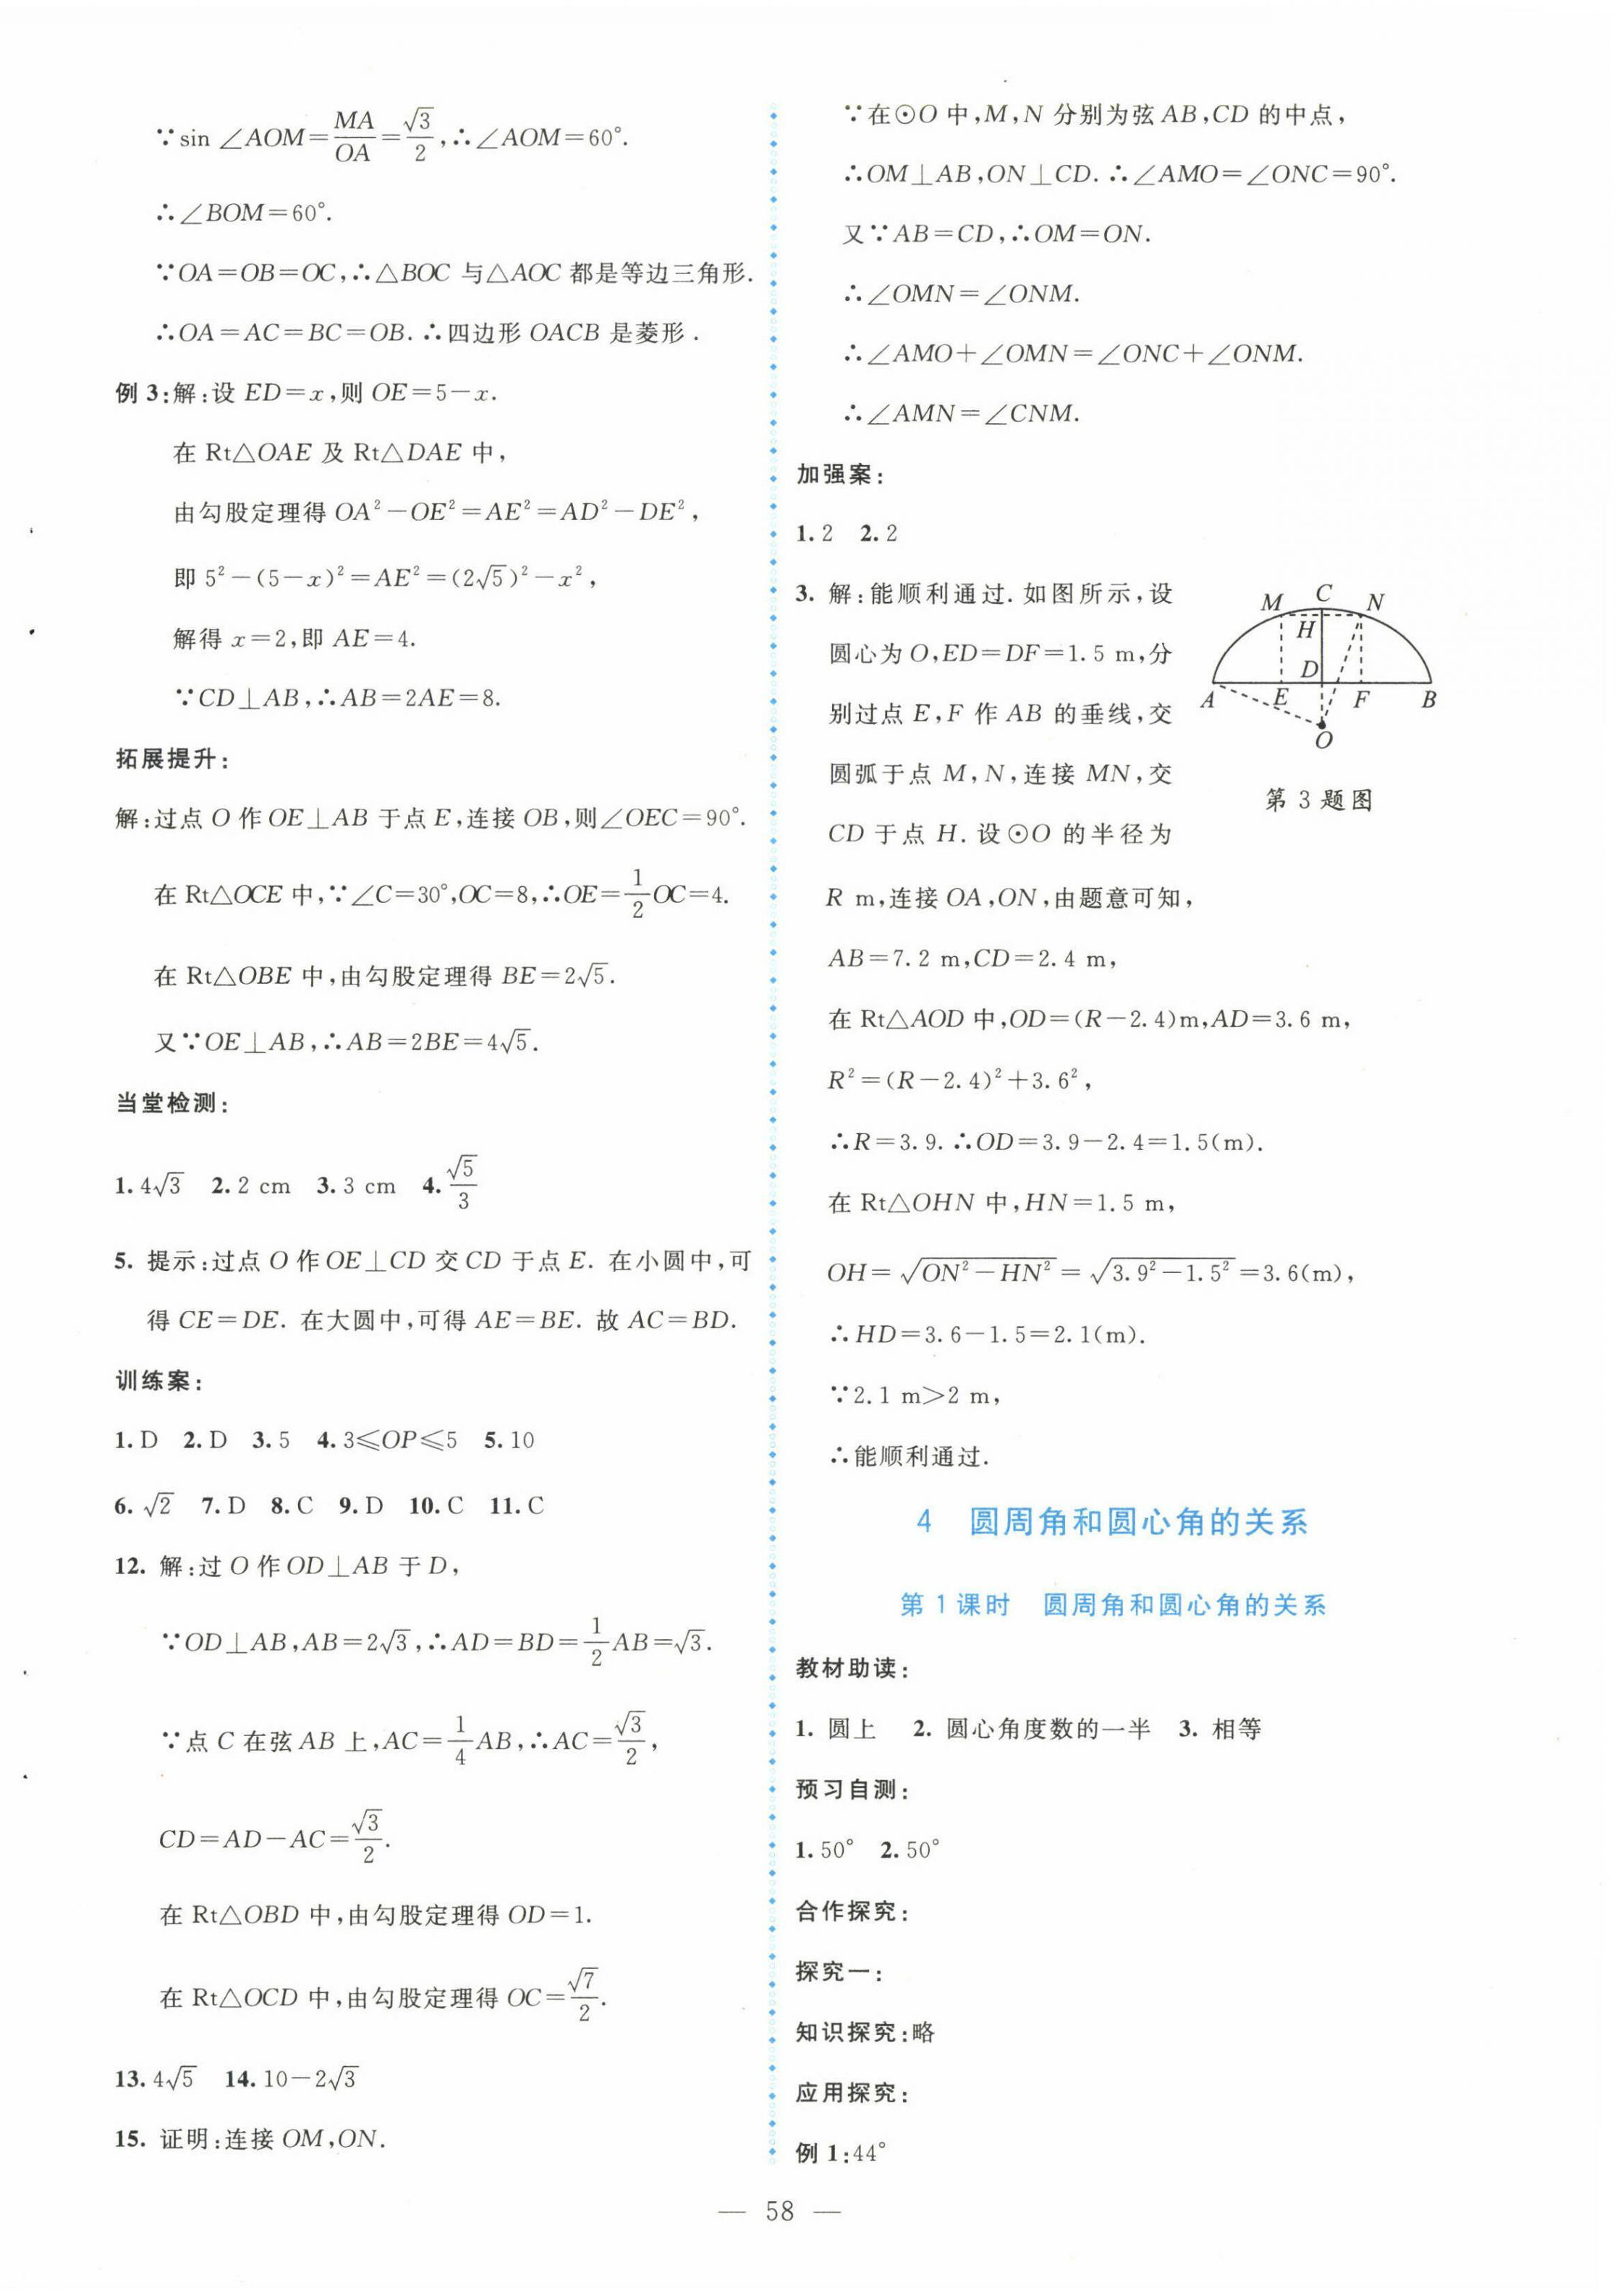 ∵sin ∠AOM=MA/OA=√3/2,∴∠AOM=60°.
∴∠BOM=60°.
∵OA=OB=OC,∴△BOC 与△AOC 都是等边三角形.
∴OA=AC=BC=OB.∴四边形 OACB 是菱形.
例 3:解:设 ED=x,则 OE=5-x.
在 Rt△OAE 及 Rt△DAE 中,
由勾股定理得 OA²-OE²=AE²=AD²-DE²,
即 5²-(5-x)²=AE²=(2√5)²-x²,
解得 x=2,即 AE=4.
∵CD⊥AB,∴AB=2AE=8.
拓展提升:
解:过点 O 作 OE⊥AB 于点 E,连接 OB,则∠OEC=90°.
在 Rt△OCE 中,∵∠C=30°,OC=8,∴OE=1/2OC=4.
在 Rt△OBE 中,由勾股定理得 BE=2√5.
又∵OE⊥AB,∴AB=2BE=4√5.
当堂检测:
1. 4√3 2. 2 cm 3. 3 cm 4. √5/3
5. 提示:过点 O 作 OE⊥CD 交 CD 于点 E. 在小圆中,可
得 CE=DE. 在大圆中,可得 AE=BE. 故 AC=BD.
训练案:
1. D 2. D 3. 5 4. 3≤OP≤5 5. 10
6. √2 7. D 8. C 9. D 10. C 11. C
12. 解:过 O 作 OD⊥AB 于 D,
∵OD⊥AB,AB=2√3,∴AD=BD=1/2AB=√3.
∵点 C 在弦 AB 上,AC=1/4AB,∴AC=√3/2,
CD=AD-AC=√3/2.
在 Rt△OBD 中,由勾股定理得 OD=1.
在 Rt△OCD 中,由勾股定理得 OC=√7/2.
13. 4√5 14. 10-2√3
15. 证明:连接 OM,ON.
∵在⊙O 中,M,N 分别为弦 AB,CD 的中点,
∴OM⊥AB,ON⊥CD.∴∠AMO=∠ONC=90°.
又∵AB=CD,∴OM=ON.
∴∠OMN=∠ONM.
∴∠AMO+∠OMN=∠ONC+∠ONM.
∴∠AMN=∠CNM.
加强案:
1. 2 2. 2
3. 解:能顺利通过. 如图所示,设
圆心为 O,ED=DF=1.5 m,分
别过点 E,F 作 AB 的垂线,交
圆弧于点 M,N,连接 MN,交
CD 于点 H. 设⊙O 的半径为
R m,连接 OA,ON,由题意可知,
AB=7.2 m,CD=2.4 m,
在 Rt△AOD 中,OD=(R-2.4)m,AD=3.6 m,
R²=(R-2.4)²+3.6²,
∴R=3.9.∴OD=3.9-2.4=1.5(m).
在 Rt△OHN 中,HN=1.5 m,
OH=√(ON²-HN²)=√(3.9²-1.5²)=3.6(m),
∴HD=3.6-1.5=2.1(m).
∵2.1 m>2 m,
∴能顺利通过.
M C N
H
D
A E F B
O
第 3 题图
4 圆周角和圆心角的关系
第 1 课时 圆周角和圆心角的关系
教材助读:
1. 圆上 2. 圆心角度数的一半 3. 相等
预习自测:
1. 50° 2. 50°
合作探究:
探究一:
知识探究:略
应用探究:
例 1:44°
— 58 —